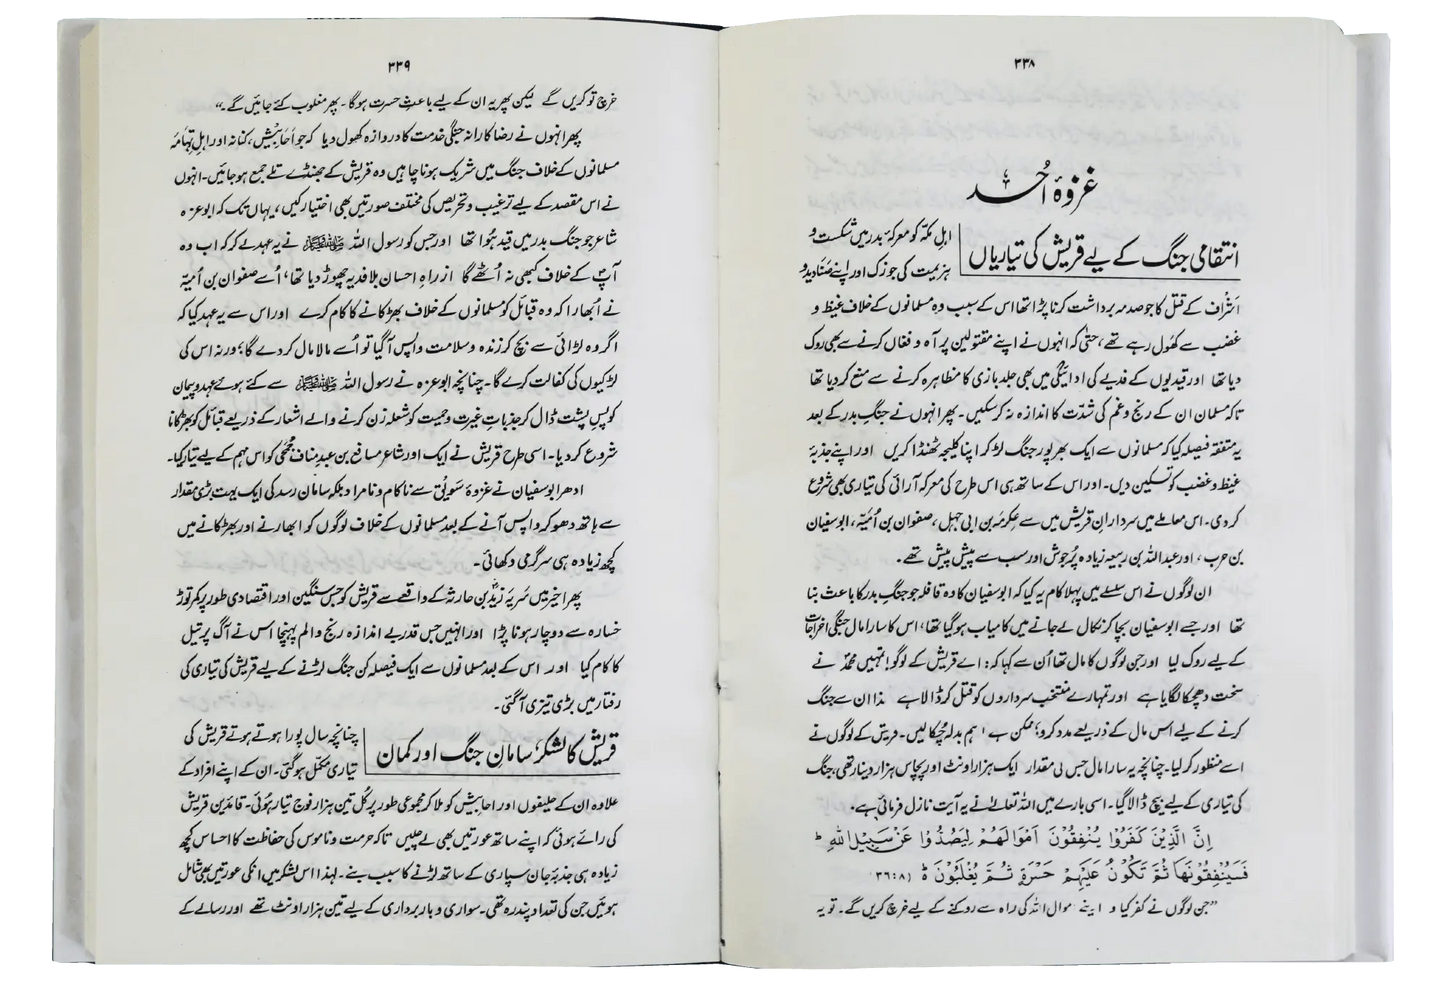 ۳۳۸
غزوۂ اُحد
انتقامی جنگ کے لیے قریش کی تیاریاں
اہلِ مکہ کو معرکۂ بدر میں شکست و
ہزیمت کی جو زک اور اپنے صَنَادید و
اَشراف کے قتل کا جو صدمہ برداشت کرنا پڑا تھا اس کے سبب وہ مسلمانوں کے خلاف غیظ و
غضب سے کھَول رہے تھے، حتیٰ کہ انہوں نے اپنے مقتولین پر آہ و فغاں کرنے سے بھی روک
دیا تھا اور قیدیوں کے فدیے کی ادائیگی میں بھی جلد بازی کا مظاہرہ کرنے سے منع کر دیا تھا
تاکہ مسلمان ان کے رنج و غم کی شدّت کا اندازہ نہ کر سکیں۔ پھر انہوں نے جنگِ بدر کے بعد
یہ متفقہ فیصلہ کیا کہ مسلمانوں سے ایک بھرپور جنگ لڑ کر اپنا کلیجہ ٹھنڈا کریں اور اپنے جذبۂ
غیظ و غضب کو تسکین دیں۔ اور اس کے ساتھ ہی اس طرح کی معرکہ آرائی کی تیاری بھی شروع
کر دی۔ اس معاملے میں سردارانِ قریش میں سے عِکرمَہ بن ابی جہل، صفوان بن اُمَیَّہ، ابوسفیان
بن حرب، اور عبداللہ بن ربیعہ زیادہ پُرجوش اور سب سے پیش پیش تھے۔
ان لوگوں نے اس سلسلے میں پہلا کام یہ کیا کہ ابوسفیان کا وہ قافلہ جو جنگِ بدر کا باعث بنا
تھا اور جسے ابوسفیان بچا کر نکال لے جانے میں کامیاب ہو گیا تھا، اس کا سارا مال جنگی اخراجات
کے لیے روک لیا اور جن لوگوں کا مال تھا اُن سے کہا کہ: اے قریش کے لوگو! تمہیں محمدؐ نے
سخت دھچکا لگایا ہے اور تمہارے منتخب سرداروں کو قتل کر ڈالا ہے ہذا ان سے جنگ
کرنے کے لیے اس مال کے ذریعے مدد کرو؛ ممکن ہے ہم بدلہ چُکا لیں۔ قریش کے لوگوں نے
اسے منظور کر لیا۔ چنانچہ یہ سارا مال جس کی مقدار ایک ہزار اونٹ اور پچاس ہزار دینار تھی، جنگ
کی تیاری کے لیے بیچ ڈالا گیا۔ اسی بارے میں اللہ تعالےٰ نے یہ آیت نازل فرمائی ہے۔
اِنَّ الَّذِيْنَ كَفَرُوْا يُنْفِقُوْنَ اَمْوَالَهُمْ لِيَصُدُّوْا عَنْ سَبِيْلِ اللهِ ؕ
فَسَيُنْفِقُوْنَهَا ثُمَّ تَكُوْنُ عَلَيْهِمْ حَسْرَةً ثُمَّ يُغْلَبُوْنَ ؕ (۳۶:۸)
”جن لوگوں نے کفر کیا و اپنے اموال اللہ کی راہ سے روکنے کے لیے خرچ کریں گے۔ تو یہ
۳۳۹
خرچ تو کریں گے لیکن پھر یہ ان کے لیے باعثِ حسرت ہوگا۔ پھر مغلوب کئے جائیں گے۔“
پھر انہوں نے رضا کارانہ جنگی خدمت کا دروازہ کھول دیا کہ جو اَحَابِیش، کنانہ اور اہلِ تِہَامَہ
مسلمانوں کے خلاف جنگ میں شریک ہونا چاہیں وہ قریش کے جھنڈے تلے جمع ہو جائیں۔ انہوں
نے اس مقصد کے لیے ترغیب و تحریص کی مختلف صورتیں بھی اختیار کیں، یہاں تک کہ ابوعزہ
شاعر جو جنگ بدر میں قید ہُوا تھا اور جس کو رسول اللہ ﷺ نے یہ عہد لے کر کہ اب وہ
آپؐ کے خلاف کبھی نہ اُٹھے گا ازراہِ احسان بلا فدیہ چھوڑ دیا تھا، اُسے صفوان بن اُمیّہ
نے اُبھارا کہ وہ قبائل کو مسلمانوں کے خلاف بھڑکانے کا کام کرے اور اس سے یہ عہد کیا کہ
اگر وہ لڑائی سے بچ کر زندہ و سلامت واپس آگیا تو اُسے مالا مال کر دے گا؛ ورنہ اس کی
لڑکیوں کی کفالت کرے گا۔ چنانچہ ابوعزہ نے رسول اللہ ﷺ سے کئے ہوئے عہد و پیمان
کو پسِ پشت ڈال کر جذباتِ غیرت و حمیت کو شعلہ زن کرنے والے اشعار کے ذریعے قبائل کو بھڑکانا
شروع کر دیا۔ اسی طرح قریش نے ایک اور شاعر مسافع بن عبدِ مناف جُمَحِی کو اس مہم کے لیے تیار کیا۔
ادھر ابوسفیان نے غزوۂ سَوِیق سے ناکام و نامراد بلکہ سامانِ رسد کی ایک بہت بڑی مقدار
سے ہاتھ دھو کر واپس آنے کے بعد مسلمانوں کے خلاف لوگوں کو ابھارنے اور بھڑکانے میں
کچھ زیادہ ہی سرگرمی دکھائی۔
پھر اخیر میں سَرِیّہ زیدؓ بن حارثہ کے واقعے سے قریش کو جس سنگین اور اقتصادی طور پر کمر توڑ
خسارہ سے دوچار ہونا پڑا اور انہیں جس قدر بے اندازہ رنج و الم پہنچا اس نے آگ پر تیل
کا کام کیا اور اس کے بعد مسلمانوں سے ایک فیصلہ کن جنگ لڑنے کے لیے قریش کی تیاری کی
رفتار میں بڑی تیزی آ گئی۔
قریش کا لشکر، سامانِ جنگ اور کمان
چنانچہ سال پورا ہوتے ہوتے قریش کی
تیاری مکمّل ہو گئی۔ ان کے اپنے افراد کے
علاوہ ان کے حلیفوں اور احابیش کو ملا کر مجموعی طور پر کُل تین ہزار فوج تیار ہُوئی۔ قائدینِ قریش
کی رائے ہوئی کہ اپنے ساتھ عورتیں بھی لے چلیں تاکہ حرمت و ناموس کی حفاظت کا احساس کچھ
زیادہ ہی جذبۂ جان سپاری کے ساتھ لڑنے کا سبب بنے۔ لہٰذا اس لشکر میں انکی عورتیں بھی شامل
ہوئیں جن کی تعداد پندرہ تھی۔ سواری و بار برداری کے لیے تین ہزار اونٹ تھے اور رسالے کے